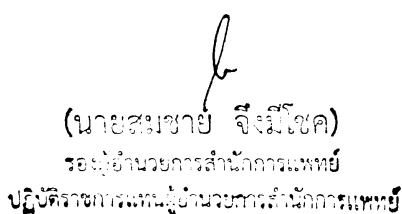 (นายสมชาย จึงมีโชค)
รองผู้อำนวยการสำนักการแพทย์
ปฏิบัติราชการแทนผู้อำนวยการสำนักการแพทย์